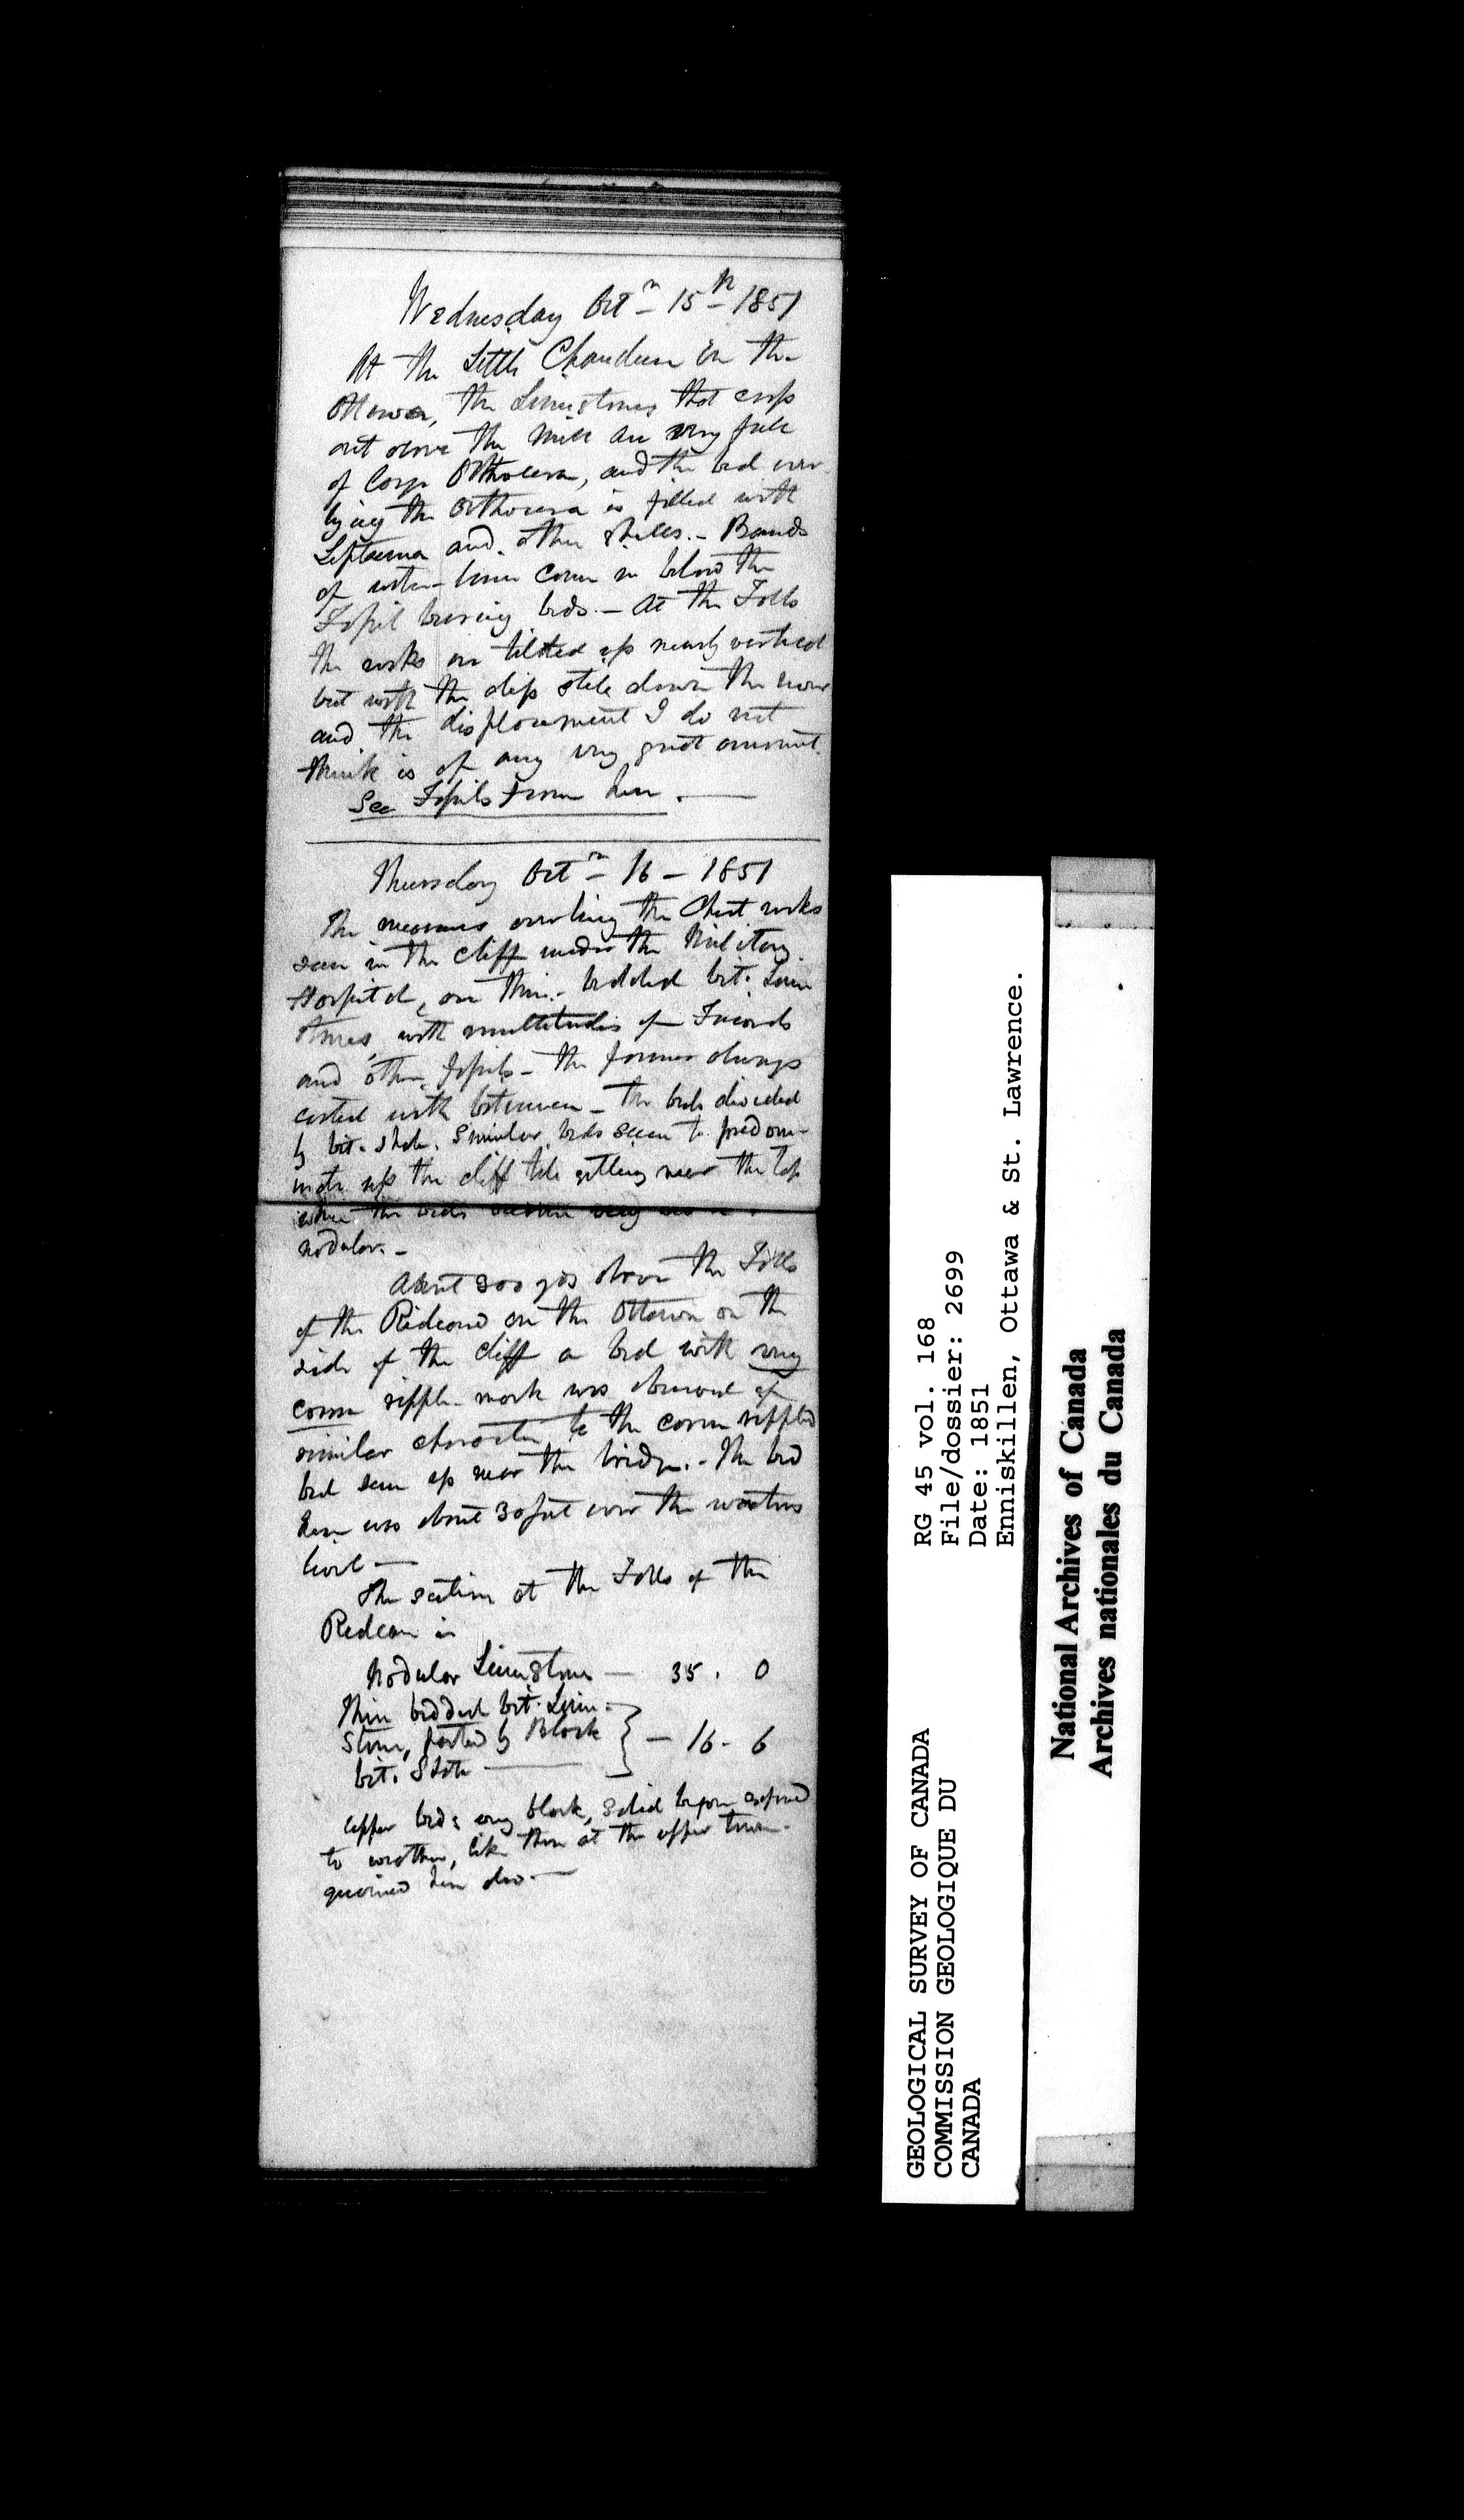 Wednesday Octr 15th 1851
At the Little Chaudiere on the
Ottawa, the Limestones that crop
out above the mill are very full
of large Orthocera, and the bed over-
lying the Orthocera is filled with
Leptaena and other shells. - Bands
of water-lime come in below the
Fossil bearing beds. - At the Falls
the rocks are tilted up nearly vertical
but with the dip still down the river
and the displacement I do not
think is of any very great amount.
See Fossils from here. —
Thursday Octr 16 - 1851
The measures overlying the Chert rocks
seen in the cliff under the Military
Hospital, are thin-bedded bit. Lime
stones, with multitudes of Fucoids
and other fossils - the former always
coated with bitumen - the beds divided
by bit. shale. Similar beds seem to predom-
inate up the cliff till getting near the top
where the beds become very
nodular. -
About 300 yds above the Falls
of the Rideau on the Ottawa on the
side of the cliff a bed with very
coarse ripple-mark was observed of
similar character to the coarse rippled
bed seen up near the bridge. - The bed
here was about 30 feet over the waters
level —
The section at the Falls of the
Rideau is
Nodular Limestone — 35 . 0
Thin bedded bit. Lime-
stone, parted by Black } — 16 - 6
bit. Shale —
Upper beds very black, solid before exposed
to weather, like those at the upper town -
quarried here also. —
GEOLOGICAL SURVEY OF CANADA
COMMISSION GEOLOGIQUE DU
CANADA
RG 45 vol. 168
File/dossier: 2699
Date: 1851
Enniskillen, Ottawa & St. Lawrence.
National Archives of Canada
Archives nationales du Canada